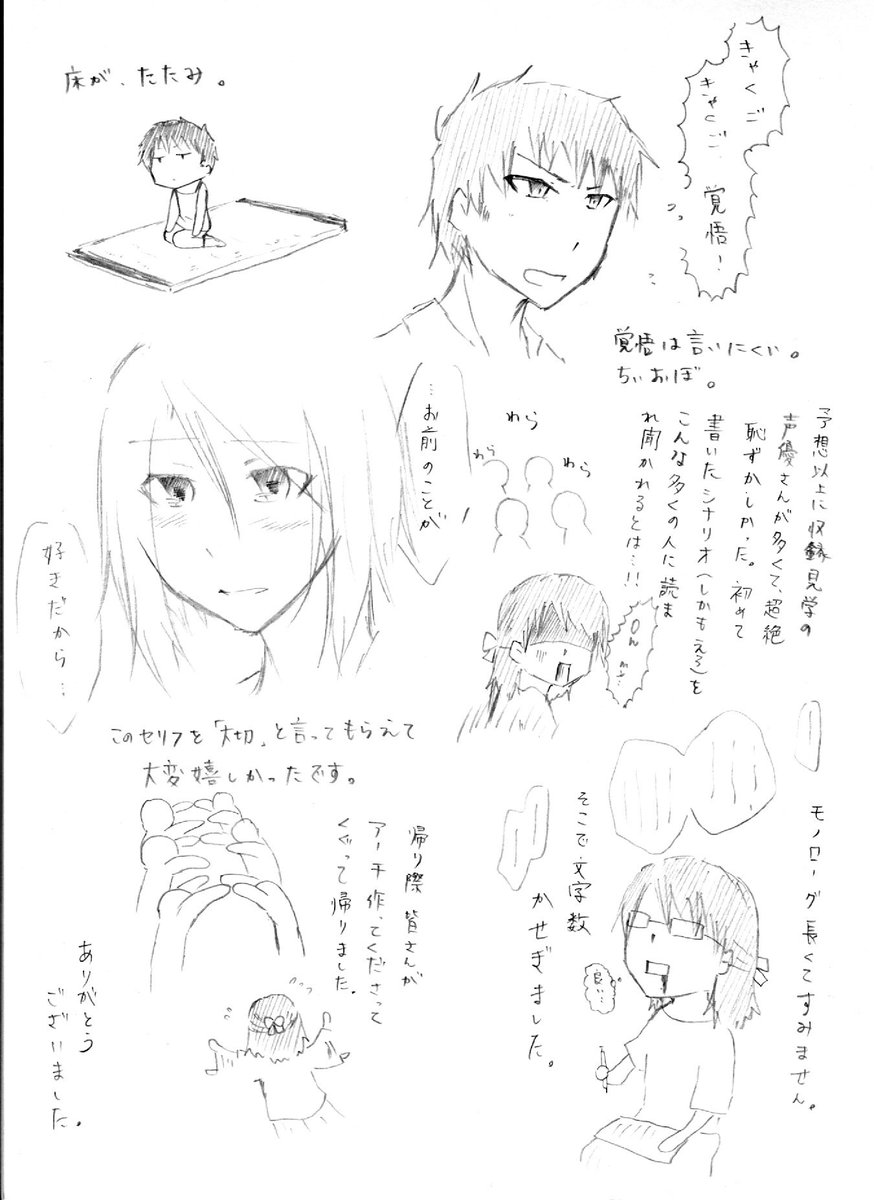 きゃくご
きゃくご
覚悟!
床が、たたみ。
覚悟は言いにくい。
ちぃおぼ。
予想以上に収録見学の
声優さんが多くて、超絶
恥ずかしかった。初めて
書いたシナリオ(しかもえろ)を
こんな多くの人に読ま
れ聞かれるとは…!!
わら
わら
わら
…お前のことが
好きだから…
このセリフを「大切」と言ってもらえて
大変嬉しかったです。
モノローグ長くてすみません。
そこで文字数
かせぎました。
良い…
帰り際皆さんが
アーチ作ってくださって
くぐって帰りました。
ありがとう
ございました。